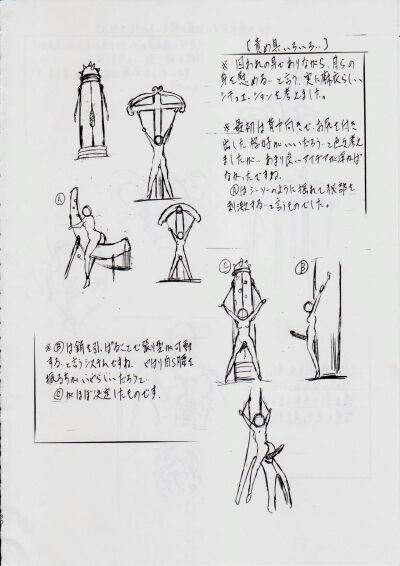 [責め具いろいろ…]
※ 囚われの身でありながら、自らの
身を慰める…と言う、実に麻衣らしい
シチュエーションを考えました。
※ 最初は背中向きで、お尻を付き
出した格好がいいだろう…と色々考え
ましたが…あまり良いアイデアが浮かば
なかったですね。
Ⓐはシーソーのように揺れて秘部を
刺激する…と言うものでした。
Ⓐ
Ⓒ
Ⓑ
※ Ⓑは鎖を引っぱることで張り型が可動
する…と言うシステムですね やはり自ら腰を
振る方がいやらしいだろうと…
Ⓒがほぼ決定したものです.